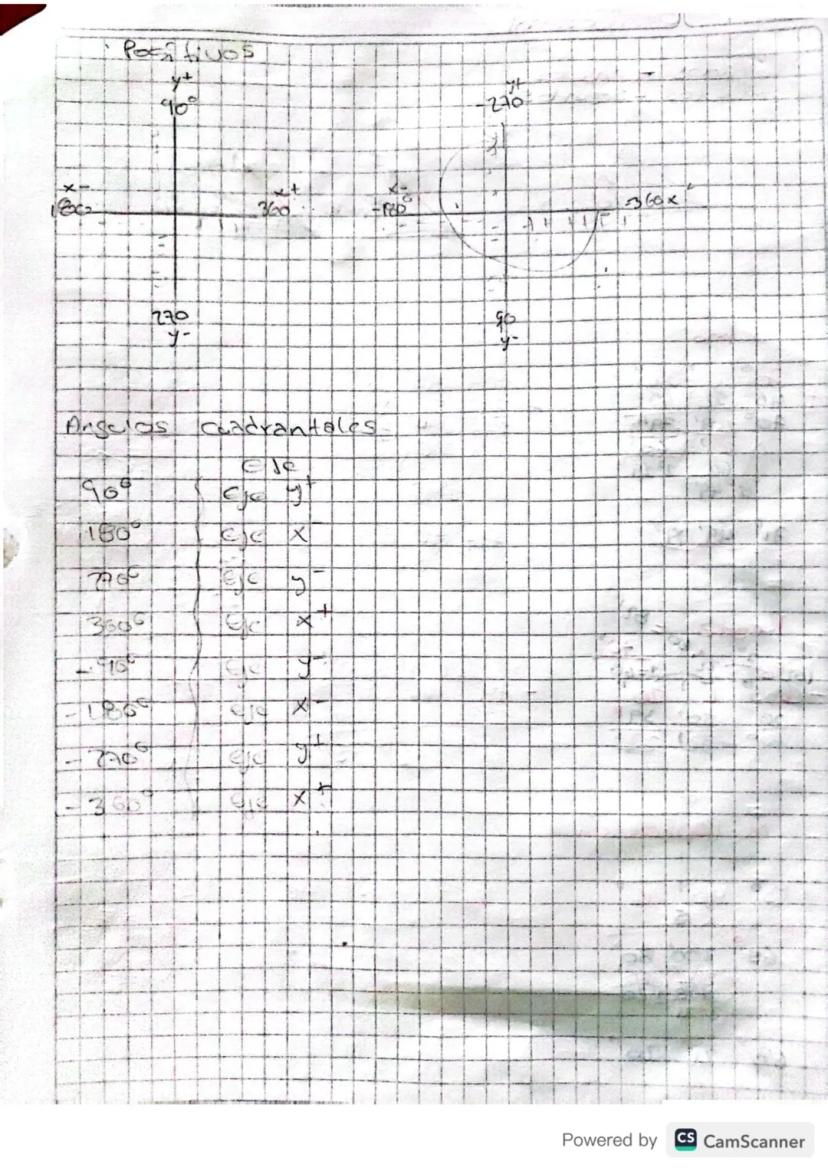 Positivos
y+
90°
x-
180
x+
360
270
y-
y+
-270
x-
-180°
-360x+
90
y-
Angulos cuadrantales
eje
90° eje y+
180° eje x-
270° eje y-
360° eje x+
-90° eje y-
-180° eje x-
-270° eje y+
-360° eje x+
Powered by CS CamScanner